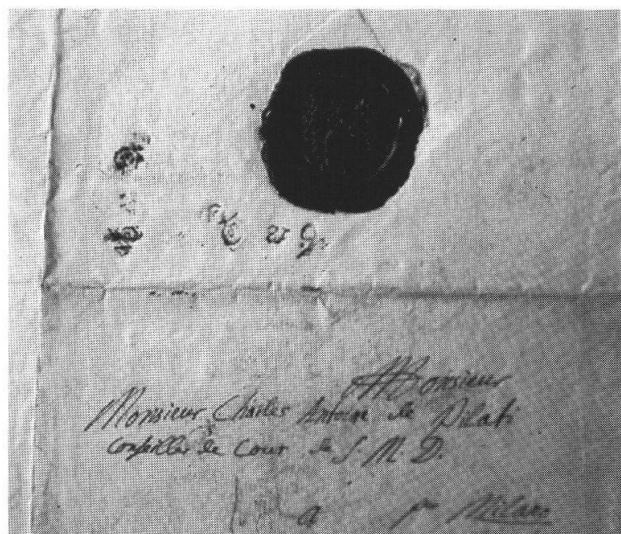 Monsieur
Monsieur Charles Antoine de Pilati
Conseiller de Cour de S. M. D.
a pr Milano